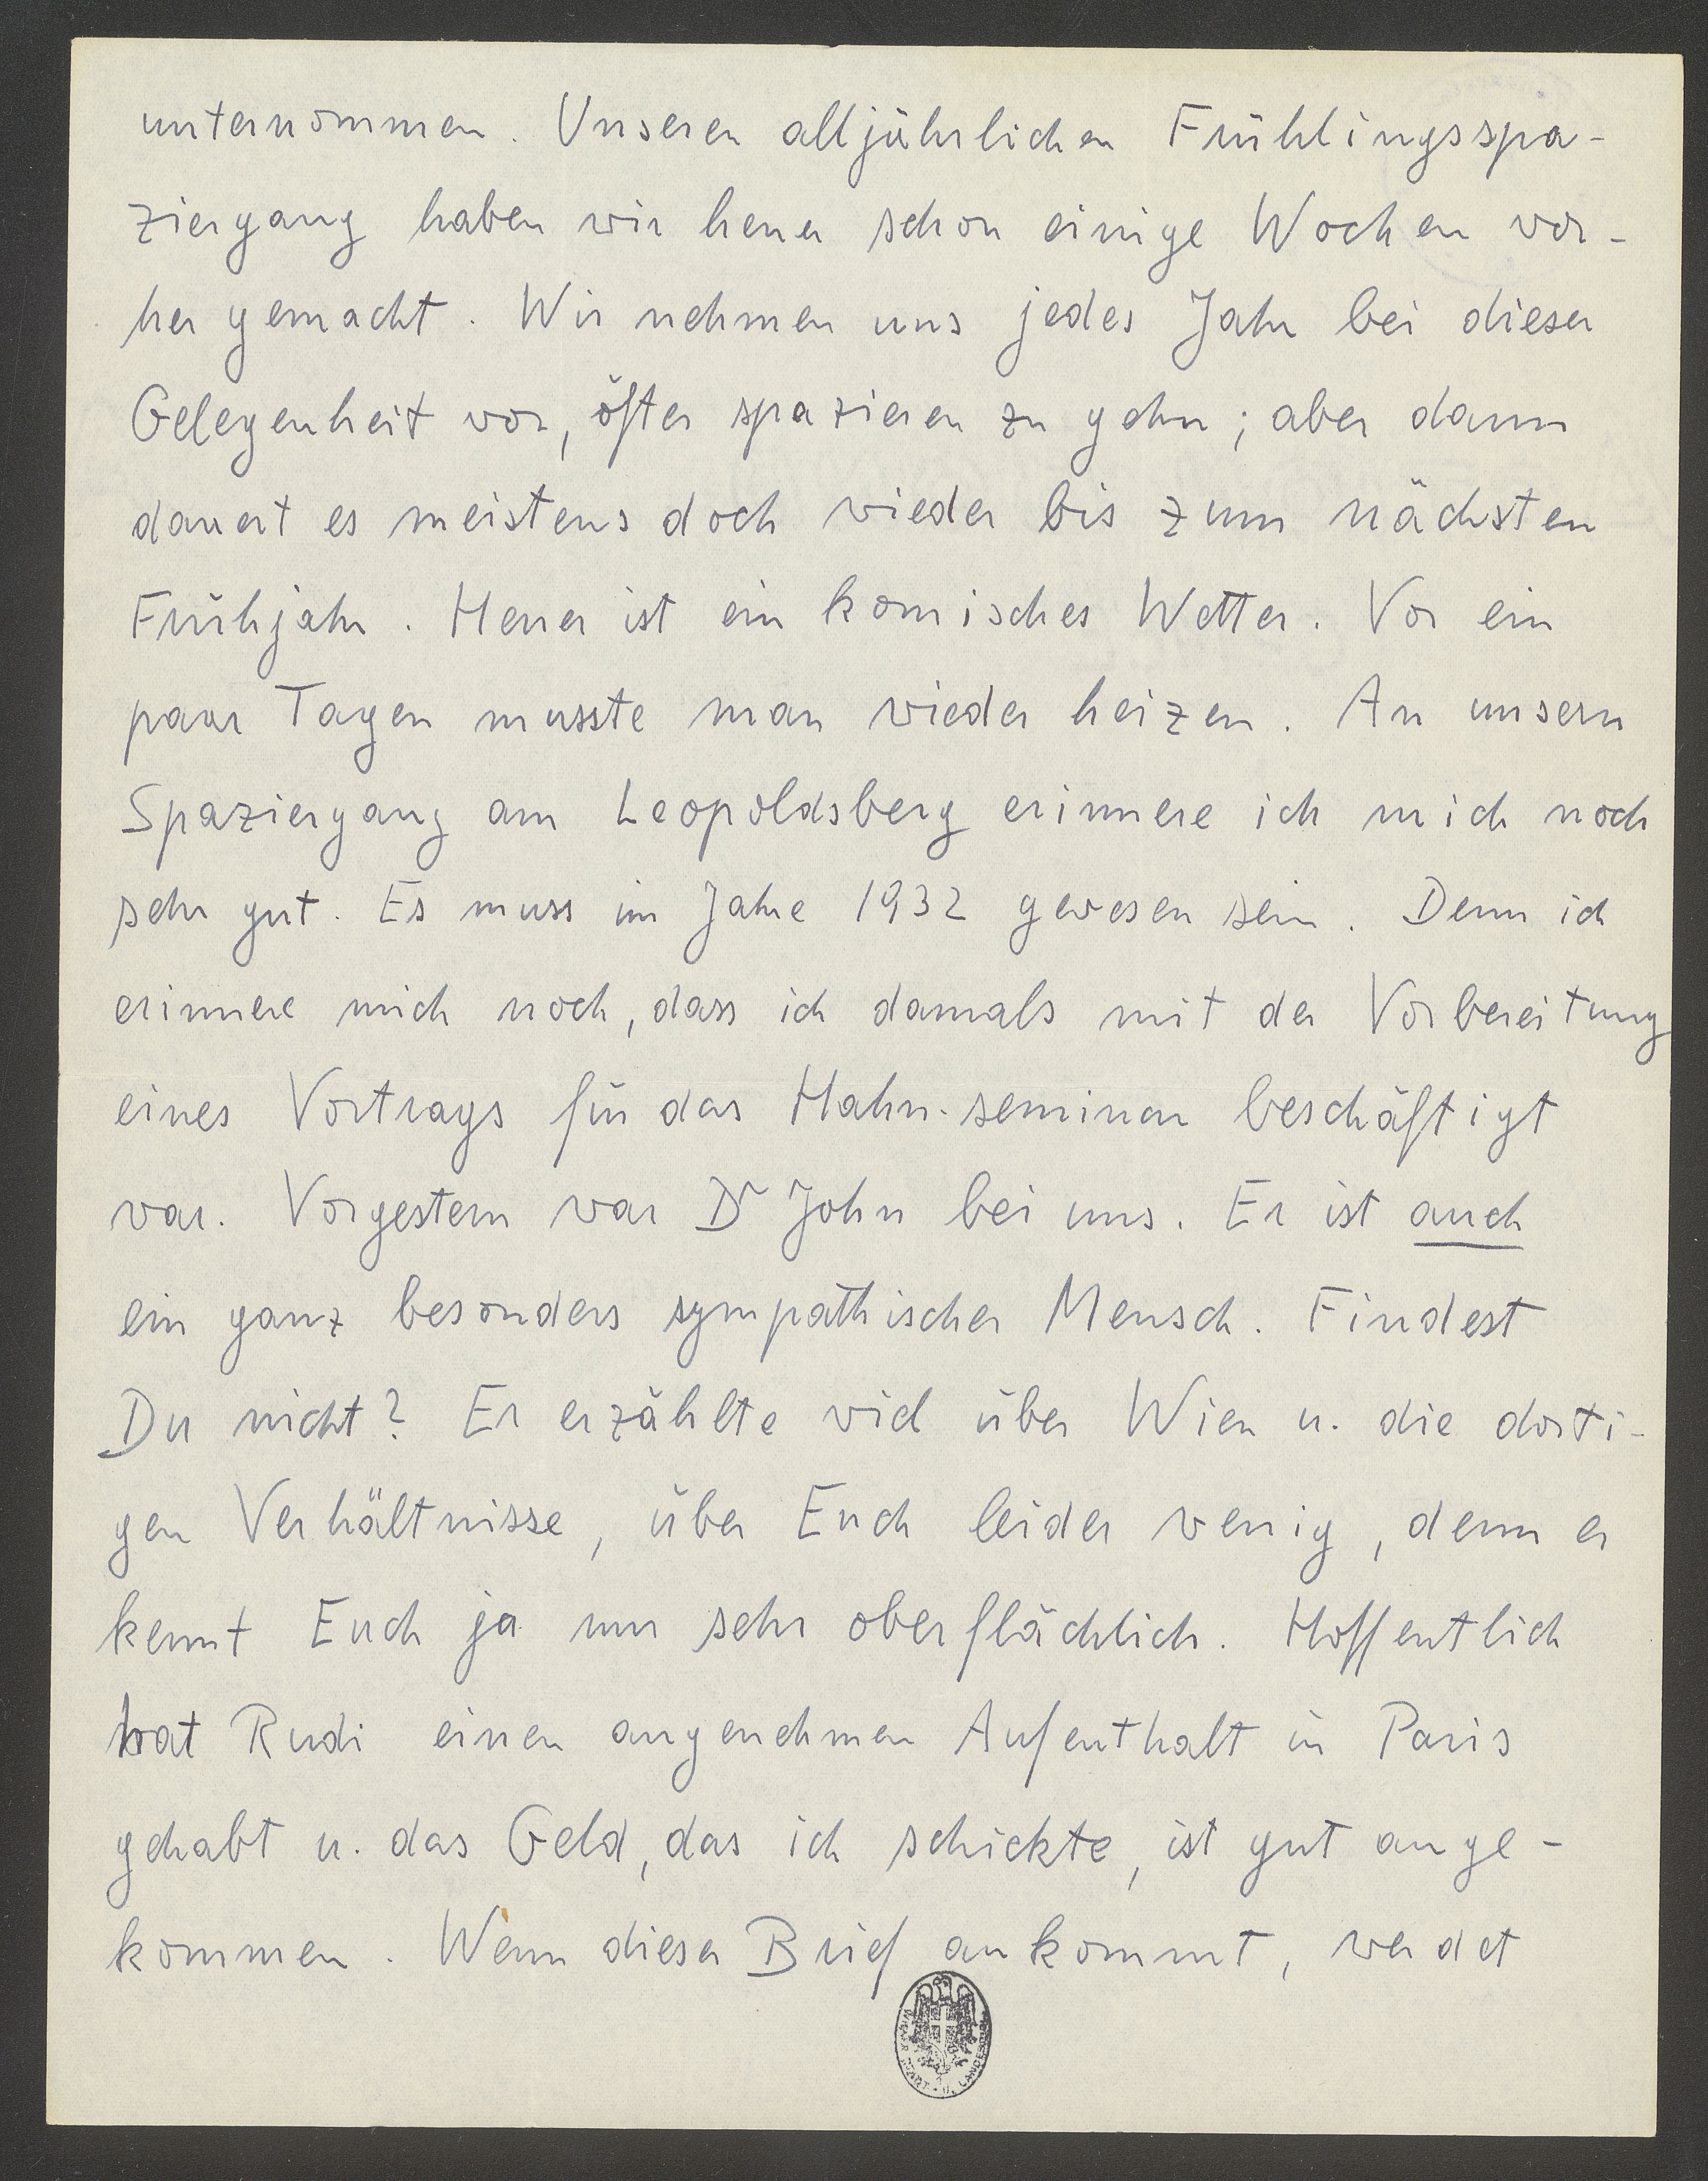 unternommen. Unseren alljährlichen Frühlingsspa-
ziergang haben wir heuer schon einige Wochen vor-
her gemacht. Wir nehmen uns jedes Jahr bei dieser
Gelegenheit vor, öfter spazieren zu gehn; aber dann
dauert es meistens doch wieder bis zum nächsten
Frühjahr. Heuer ist ein komisches Wetter. Vor ein
paar Tagen musste man wieder heizen. An unsern
Spaziergang am Leopoldsberg erinnere ich mich noch
sehr gut. Es muss im Jahre 1932 gewesen sein. Denn ich
erinnere mich noch, dass ich damals mit der Vorbereitung
eines Vortrags für das Hahn-seminar beschäftigt
war. Vorgestern war Dr John bei uns. Er ist auch
ein ganz besonders sympathischer Mensch. Findest
Du nicht? Er erzählte viel über Wien u. die dorti-
gen Verhältnisse, über Euch leider wenig, denn er
kennt Euch ja nur sehr oberflächlich. Hoffentlich
hat Rudi einen angenehmen Aufenthalt in Paris
gehabt u. das Geld, das ich schickte, ist gut ange-
kommen. Wenn dieser Brief ankommt, werdet